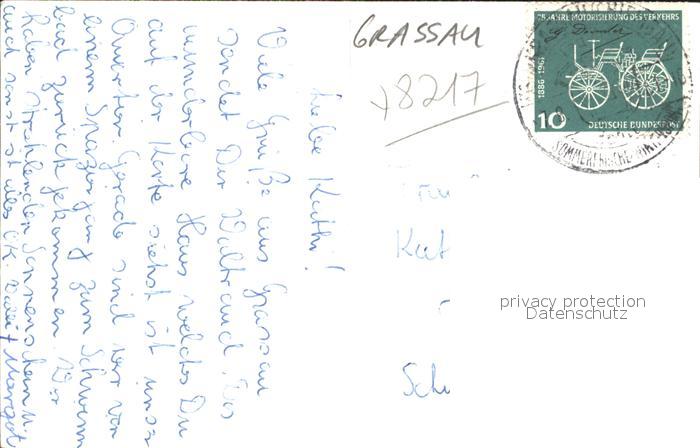 Liebe Kathi!
Viele Grüße aus Grassau
sendet Dir Waltraud. Das
wunderbare Haus welches Du
auf der Karte siehst ist unser
Quartier. Gerade sind wir von
einem Spaziergang zum Schwimm
bad zurück gekommen. Wir
haben strahlenden Sonnenschein u.
auch sonst ist alles O.K. Margot
GRASSAU
8217
75 JAHRE MOTORISIERUNG DES VERKEHRS
G. Daimler
1886-1961
10
DEUTSCHE BUNDESPOST
SOMMERFRISCHE
Kat
Sch
privacy protection
Datenschutz